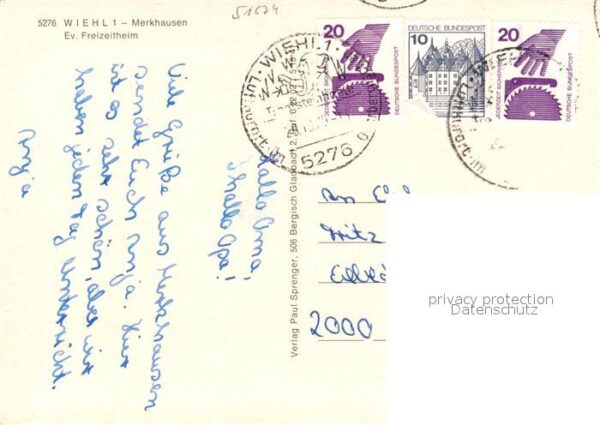 5276 WIEHL 1 – Merkhausen
Ev. Freizeitheim
51674
20
DEUTSCHE BUNDESPOST
10
DEUTSCHE BUNDESPOST
20
JEDERZEIT SICHERHEIT
DEUTSCHE BUNDESPOST
WIEHL 1
5276
Hallo Oma,
Hallo Opa!
Viele Grüße aus Merkhausen
sendet Euch Anja. Hier
ist es sehr schön, aber wir
haben jeden Tag Unterricht.
Anja
Verlag Paul Sprenger, 506 Bergisch Gladbach 2
An
Fritz
2000
privacy protection
Datenschutz